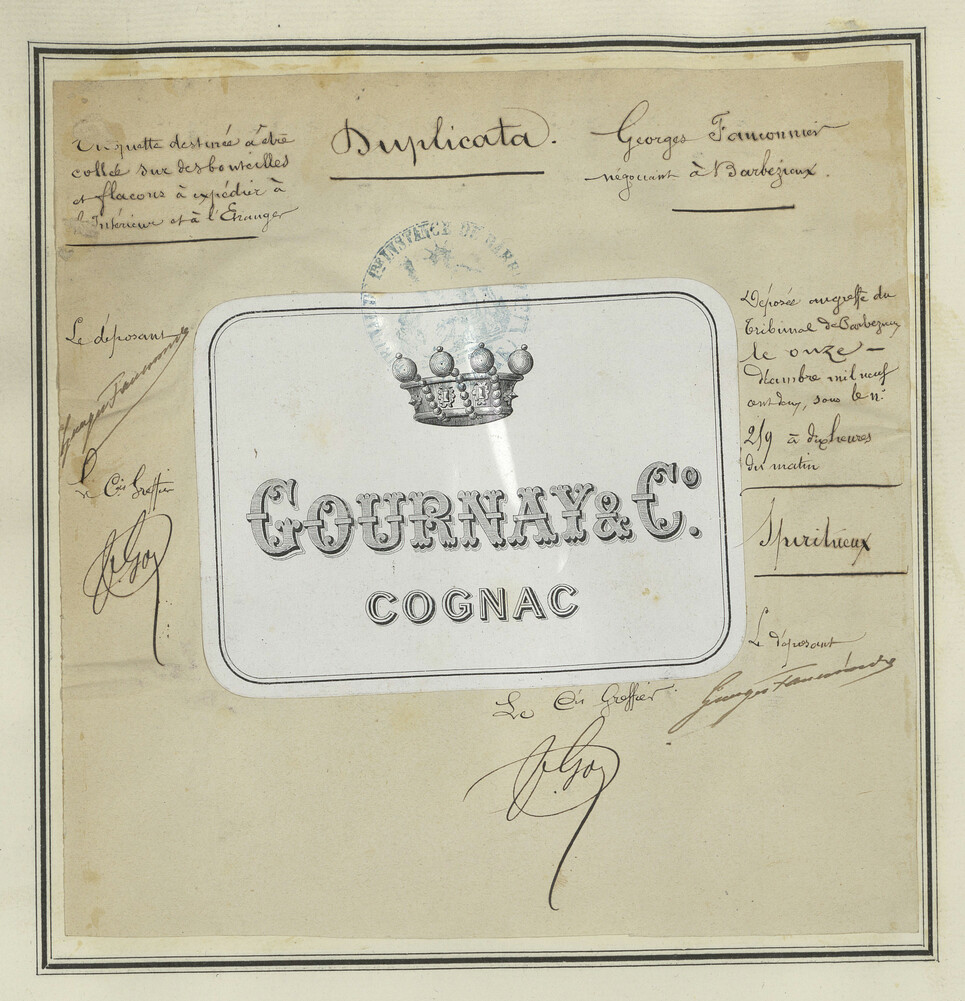 Duplicata.
Etiquette destinée à être
collée sur des bouteilles
et flacons à expédier à
l'Intérieur et à l'Etranger
Georges Fauconnier
négociant à Barbezieux.
Ire INSTANCE DE BARB
Le déposant
Georges Fauconnier
Le Cis Greffier
GOURNAY & Co.
COGNAC
Déposée au greffe du
Tribunal de Barbezieux
le onze —
décembre mil neuf
cent deux, sous le no.
219 à dix heures
du matin
Spiritueux
Le déposant
Georges Fauconnier
Le Cis Greffier